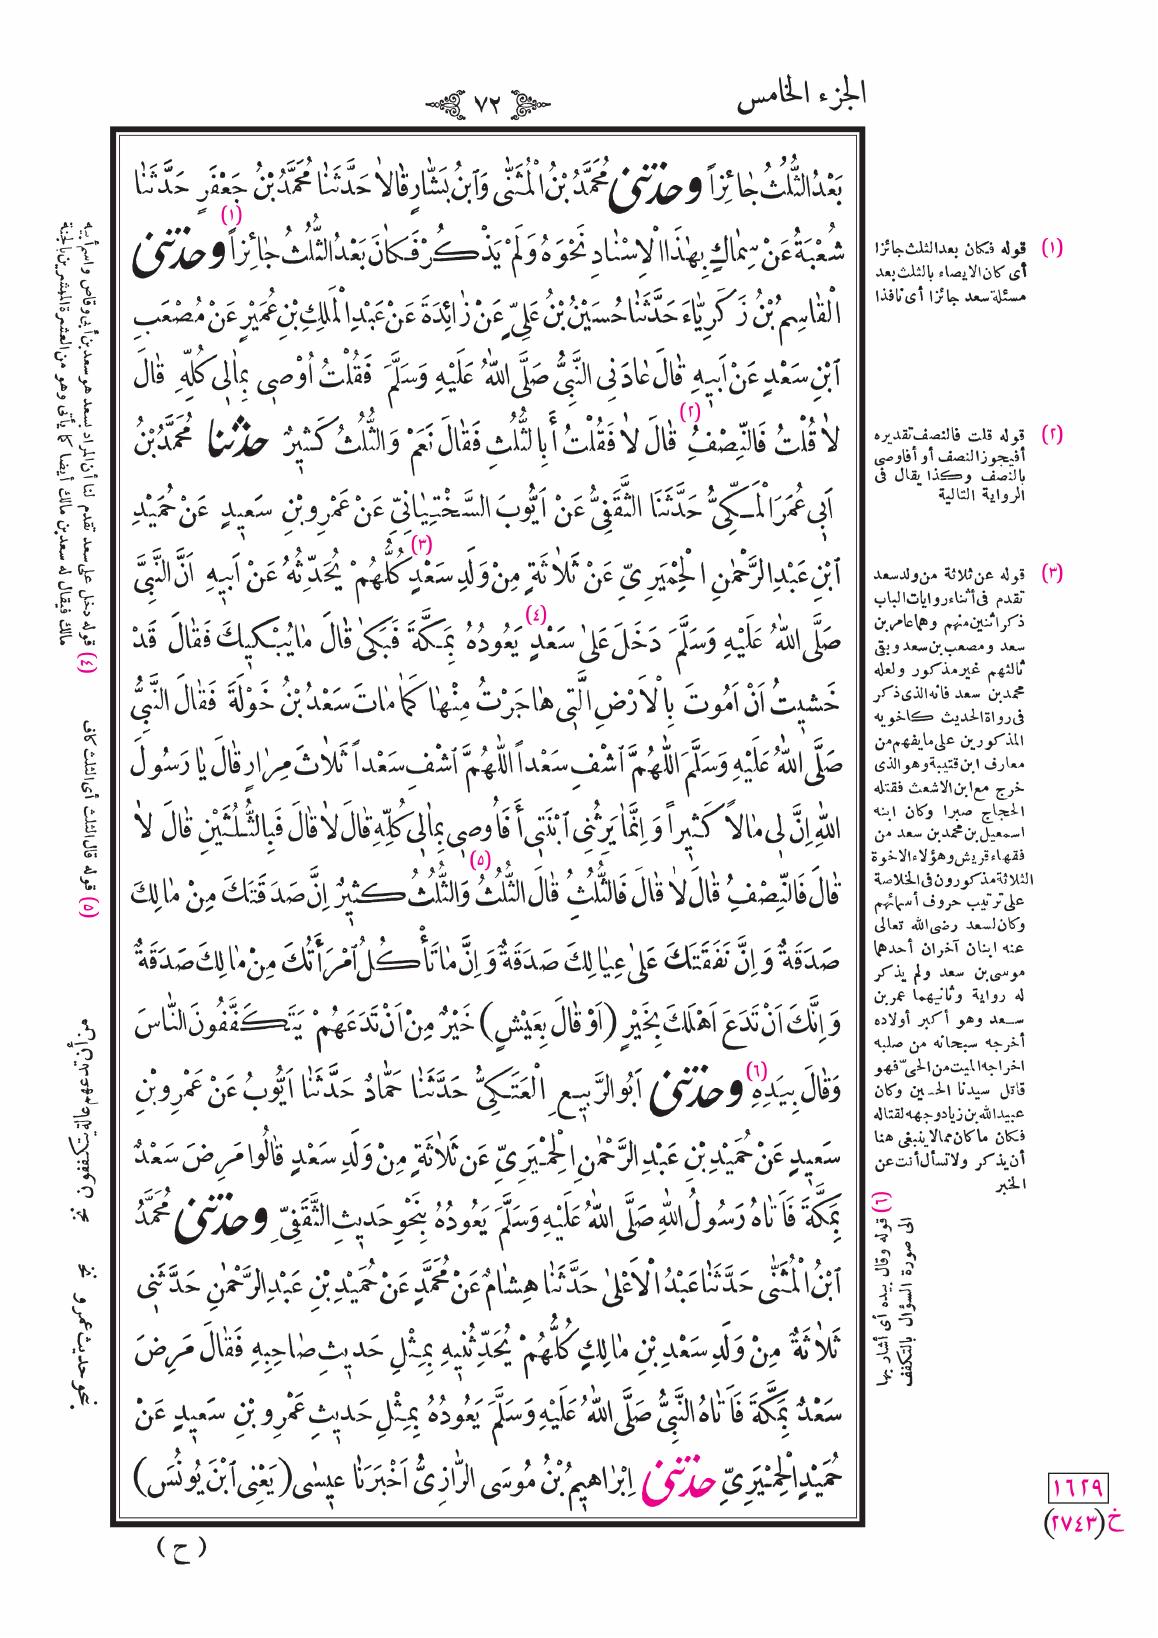 الجزء الخامس
٧٢
بَعْدُ الثُّلُثُ جَائِزاً وحدثنى مُحَمَّدُ بْنُ الْمُثَنَّى وَابْنُ بَشَّارٍ قَالَا حَدَّثَنَا مُحَمَّدُ بْنُ جَعْفَرٍ حَدَّثَنَا
شُعْبَةُ عَنْ سِمَاكٍ بِهٰذَا الْاِسْنَادِ نَحْوَهُ وَلَمْ يَذْكُرْ فَكَانَ بَعْدُ الثُّلُثُ جَائِزاً (١) وحدثنى
الْقَاسِمُ بْنُ زَكَرِيَّاءَ حَدَّثَنَا حُسَيْنُ بْنُ عَلِيٍّ عَنْ زَائِدَةَ عَنْ عَبْدِ الْمَلِكِ بْنِ عُمَيْرٍ عَنْ مُصْعَبِ
ابْنِ سَعْدٍ عَنْ اَبِيهِ قَالَ عَادَنِى النَّبِيُّ صَلَّى اللهُ عَلَيْهِ وَسَلَّمَ فَقُلْتُ اُوْصِى بِمَالِى كُلِّهِ قَالَ
لَا قُلْتُ فَالنِّصْفُ (٢) قَالَ لَا فَقُلْتُ أَبِالثُّلُثِ فَقَالَ نَعَمْ وَالثُّلُثُ كَثِيرٌ حدثنا مُحَمَّدُ بْنُ
اَبِى عُمَرَ الْمَكِّىُّ حَدَّثَنَا الثَّقَفِىُّ عَنْ اَيُّوبَ السَّخْتِيَانِىِّ عَنْ عَمْرِو بْنِ سَعِيدٍ عَنْ حُمَيْدِ
ابْنِ عَبْدِ الرَّحْمٰنِ الْحِمْيَرِىِّ عَنْ ثَلَاثَةٍ مِنْ وَلَدِ سَعْدٍ (٣) كُلُّهُمْ يُحَدِّثُهُ عَنْ اَبِيهِ اَنَّ النَّبِىَّ
صَلَّى اللهُ عَلَيْهِ وَسَلَّمَ دَخَلَ عَلَى سَعْدٍ (٤) يَعُودُهُ بِمَكَّةَ فَبَكَى قَالَ مَا يُبْكِيكَ فَقَالَ قَدْ
خَشِيتُ اَنْ اَمُوتَ بِالْاَرْضِ الَّتِى هَاجَرْتُ مِنْهَا كَمَا مَاتَ سَعْدُ بْنُ خَوْلَةَ فَقَالَ النَّبِىُّ
صَلَّى اللهُ عَلَيْهِ وَسَلَّمَ اللّٰهُمَّ اشْفِ سَعْداً اللّٰهُمَّ اشْفِ سَعْداً ثَلَاثَ مِرَارٍ قَالَ يَا رَسُولَ
اللهِ اِنَّ لِى مَالاً كَثِيراً وَاِنَّمَا يَرِثُنِى ابْنَتِى أَفَاُوصِى بِمَالِى كُلِّهِ قَالَ لَا قَالَ فَبِالثُّلُثَيْنِ قَالَ لَا
قَالَ فَالنِّصْفُ قَالَ لَا قَالَ فَالثُّلُثِ قَالَ الثُّلُثُ (٥) وَالثُّلُثُ كَثِيرٌ اِنَّ صَدَقَتَكَ مِنْ مَالِكَ
صَدَقَةٌ وَاِنَّ نَفَقَتَكَ عَلَى عِيَالِكَ صَدَقَةٌ وَاِنَّ مَا تَأْكُلُ امْرَأَتُكَ مِنْ مَالِكَ صَدَقَةٌ
وَاِنَّكَ اَنْ تَدَعَ اَهْلَكَ بِخَيْرٍ (اَوْ قَالَ بِعَيْشٍ) خَيْرٌ مِنْ اَنْ تَدَعَهُمْ يَتَكَفَّفُونَ النَّاسَ
وَقَالَ بِيَدِهِ (٦) وحدثنى اَبُو الرَّبِيعِ الْعَتَكِىُّ حَدَّثَنَا حَمَّادٌ حَدَّثَنَا اَيُّوبُ عَنْ عَمْرِو بْنِ
سَعِيدٍ عَنْ حُمَيْدِ بْنِ عَبْدِ الرَّحْمٰنِ الْحِمْيَرِىِّ عَنْ ثَلَاثَةٍ مِنْ وَلَدِ سَعْدٍ قَالُوا مَرِضَ سَعْدٌ
بِمَكَّةَ فَاَتَاهُ رَسُولُ اللهِ صَلَّى اللهُ عَلَيْهِ وَسَلَّمَ يَعُودُهُ بِنَحْوِ حَدِيثِ الثَّقَفِىِّ وحدثنى مُحَمَّدُ
ابْنُ الْمُثَنَّى حَدَّثَنَا عَبْدُ الْاَعْلَى حَدَّثَنَا هِشَامٌ عَنْ مُحَمَّدٍ عَنْ حُمَيْدِ بْنِ عَبْدِ الرَّحْمٰنِ حَدَّثَنِى
ثَلَاثَةٌ مِنْ وَلَدِ سَعْدِ بْنِ مَالِكٍ كُلُّهُمْ يُحَدِّثُنِيهِ بِمِثْلِ حَدِيثِ صَاحِبِهِ فَقَالَ مَرِضَ
سَعْدٌ بِمَكَّةَ فَاَتَاهُ النَّبِىُّ صَلَّى اللهُ عَلَيْهِ وَسَلَّمَ يَعُودُهُ بِمِثْلِ حَدِيثِ عَمْرِو بْنِ سَعِيدٍ عَنْ
حُمَيْدٍ الْحِمْيَرِىِّ حدثنى اِبْرَاهِيمُ بْنُ مُوسَى الرَّازِىُّ اَخْبَرَنَا عِيسَى (يَعْنِى ابْنَ يُونُسَ)
(ح)
(١) قوله فكان بعد الثلث جائزا
أى كان الايصاء بالثلث بعد
مسئلة سعد جائزا أى نافذا
(٢) قوله قلت فالنصف تقديره
أفيجوز النصف أو أفاوصى
بالنصف وكذا يقال فى
الرواية التالية
(٣) قوله عن ثلاثة من ولد سعد
تقدم فى أثناء روايات الباب
ذكر اثنين منهم وهما عامر بن
سعد ومصعب بن سعد وبقى
ثالثهم غير مذكور ولعله
محمد بن سعد فانه الذى ذكر
فى رواة الحديث كاخويه
المذكورين على ما يفهم من
معارف ابن قتيبة وهو الذى
خرج مع ابن الاشعث فقتله
الحجاج صبرا وكان ابنه
اسمعيل بن محمد بن سعد من
فقهاء قريش وهؤلاء الاخوة
الثلاثة مذكورون فى الخلاصة
على ترتيب حروف أسمائهم
وكان لسعد رضى الله تعالى
عنه ابنان آخران أحدهما
موسى بن سعد ولم يذكر
له رواية وثانيهما عمر بن
سعد وهو أكبر أولاده
أخرجه سبحانه من صلبه
اخراجه الميت من الحىّ فهو
قاتل سيدنا الحسين وكان
عبيد الله بن زياد وجهه لقتاله
فكان ما كان مما لا ينبغى هنا
أن يذكر ولا تسأل أنت عن
الخبر
(٦) قوله وقال بيده أى أشار بها
الى صورة السؤال بالتكفف
(٤) قوله دخل على سعد تقدم لنا أن المراد بسعد هو سعد بن أبى وقاص واسم أبيه
مالك فيقال له سعد بن مالك أيضا كما يأتى وهو من العشرة المبشرين بالجنة
(٥) قوله قال الثلث أى الثلث كاف
نحو حديث عمرو نخ
١٦٢٩
خ (٢٧٤٣)